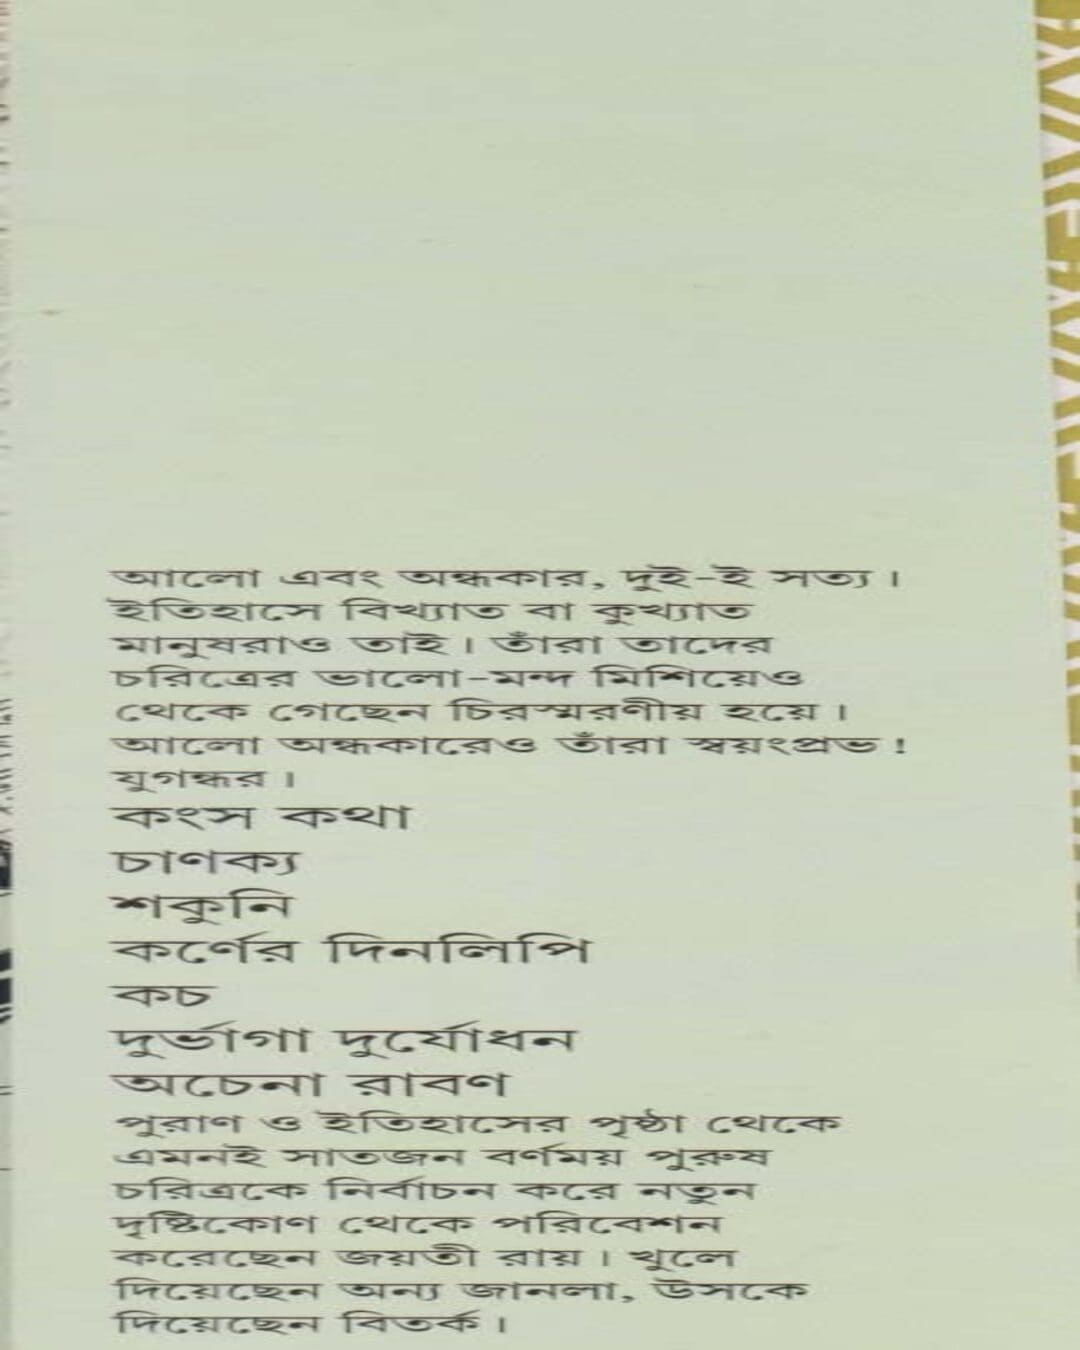 আলো এবং অন্ধকার, দুই-ই সত্য।
ইতিহাসে বিখ্যাত বা কুখ্যাত
মানুষরাও তাই। তাঁরা তাদের
চরিত্রের ভালো-মন্দ মিশিয়েও
থেকে গেছেন চিরস্মরণীয় হয়ে।
আলো অন্ধকারেও তাঁরা স্বয়ংপ্রভ!
যুগন্ধর।
কংস কথা
চাণক্য
শকুনি
কর্ণের দিনলিপি
কচ
দুর্ভাগা দুর্যোধন
অচেনা রাবণ
পুরাণ ও ইতিহাসের পৃষ্ঠা থেকে
এমনই সাতজন বর্ণময় পুরুষ
চরিত্রকে নির্বাচন করে নতুন
দৃষ্টিকোণ থেকে পরিবেশন
করেছেন জয়তী রায়। খুলে
দিয়েছেন অন্য জানলা, উসকে
দিয়েছেন বিতর্ক।